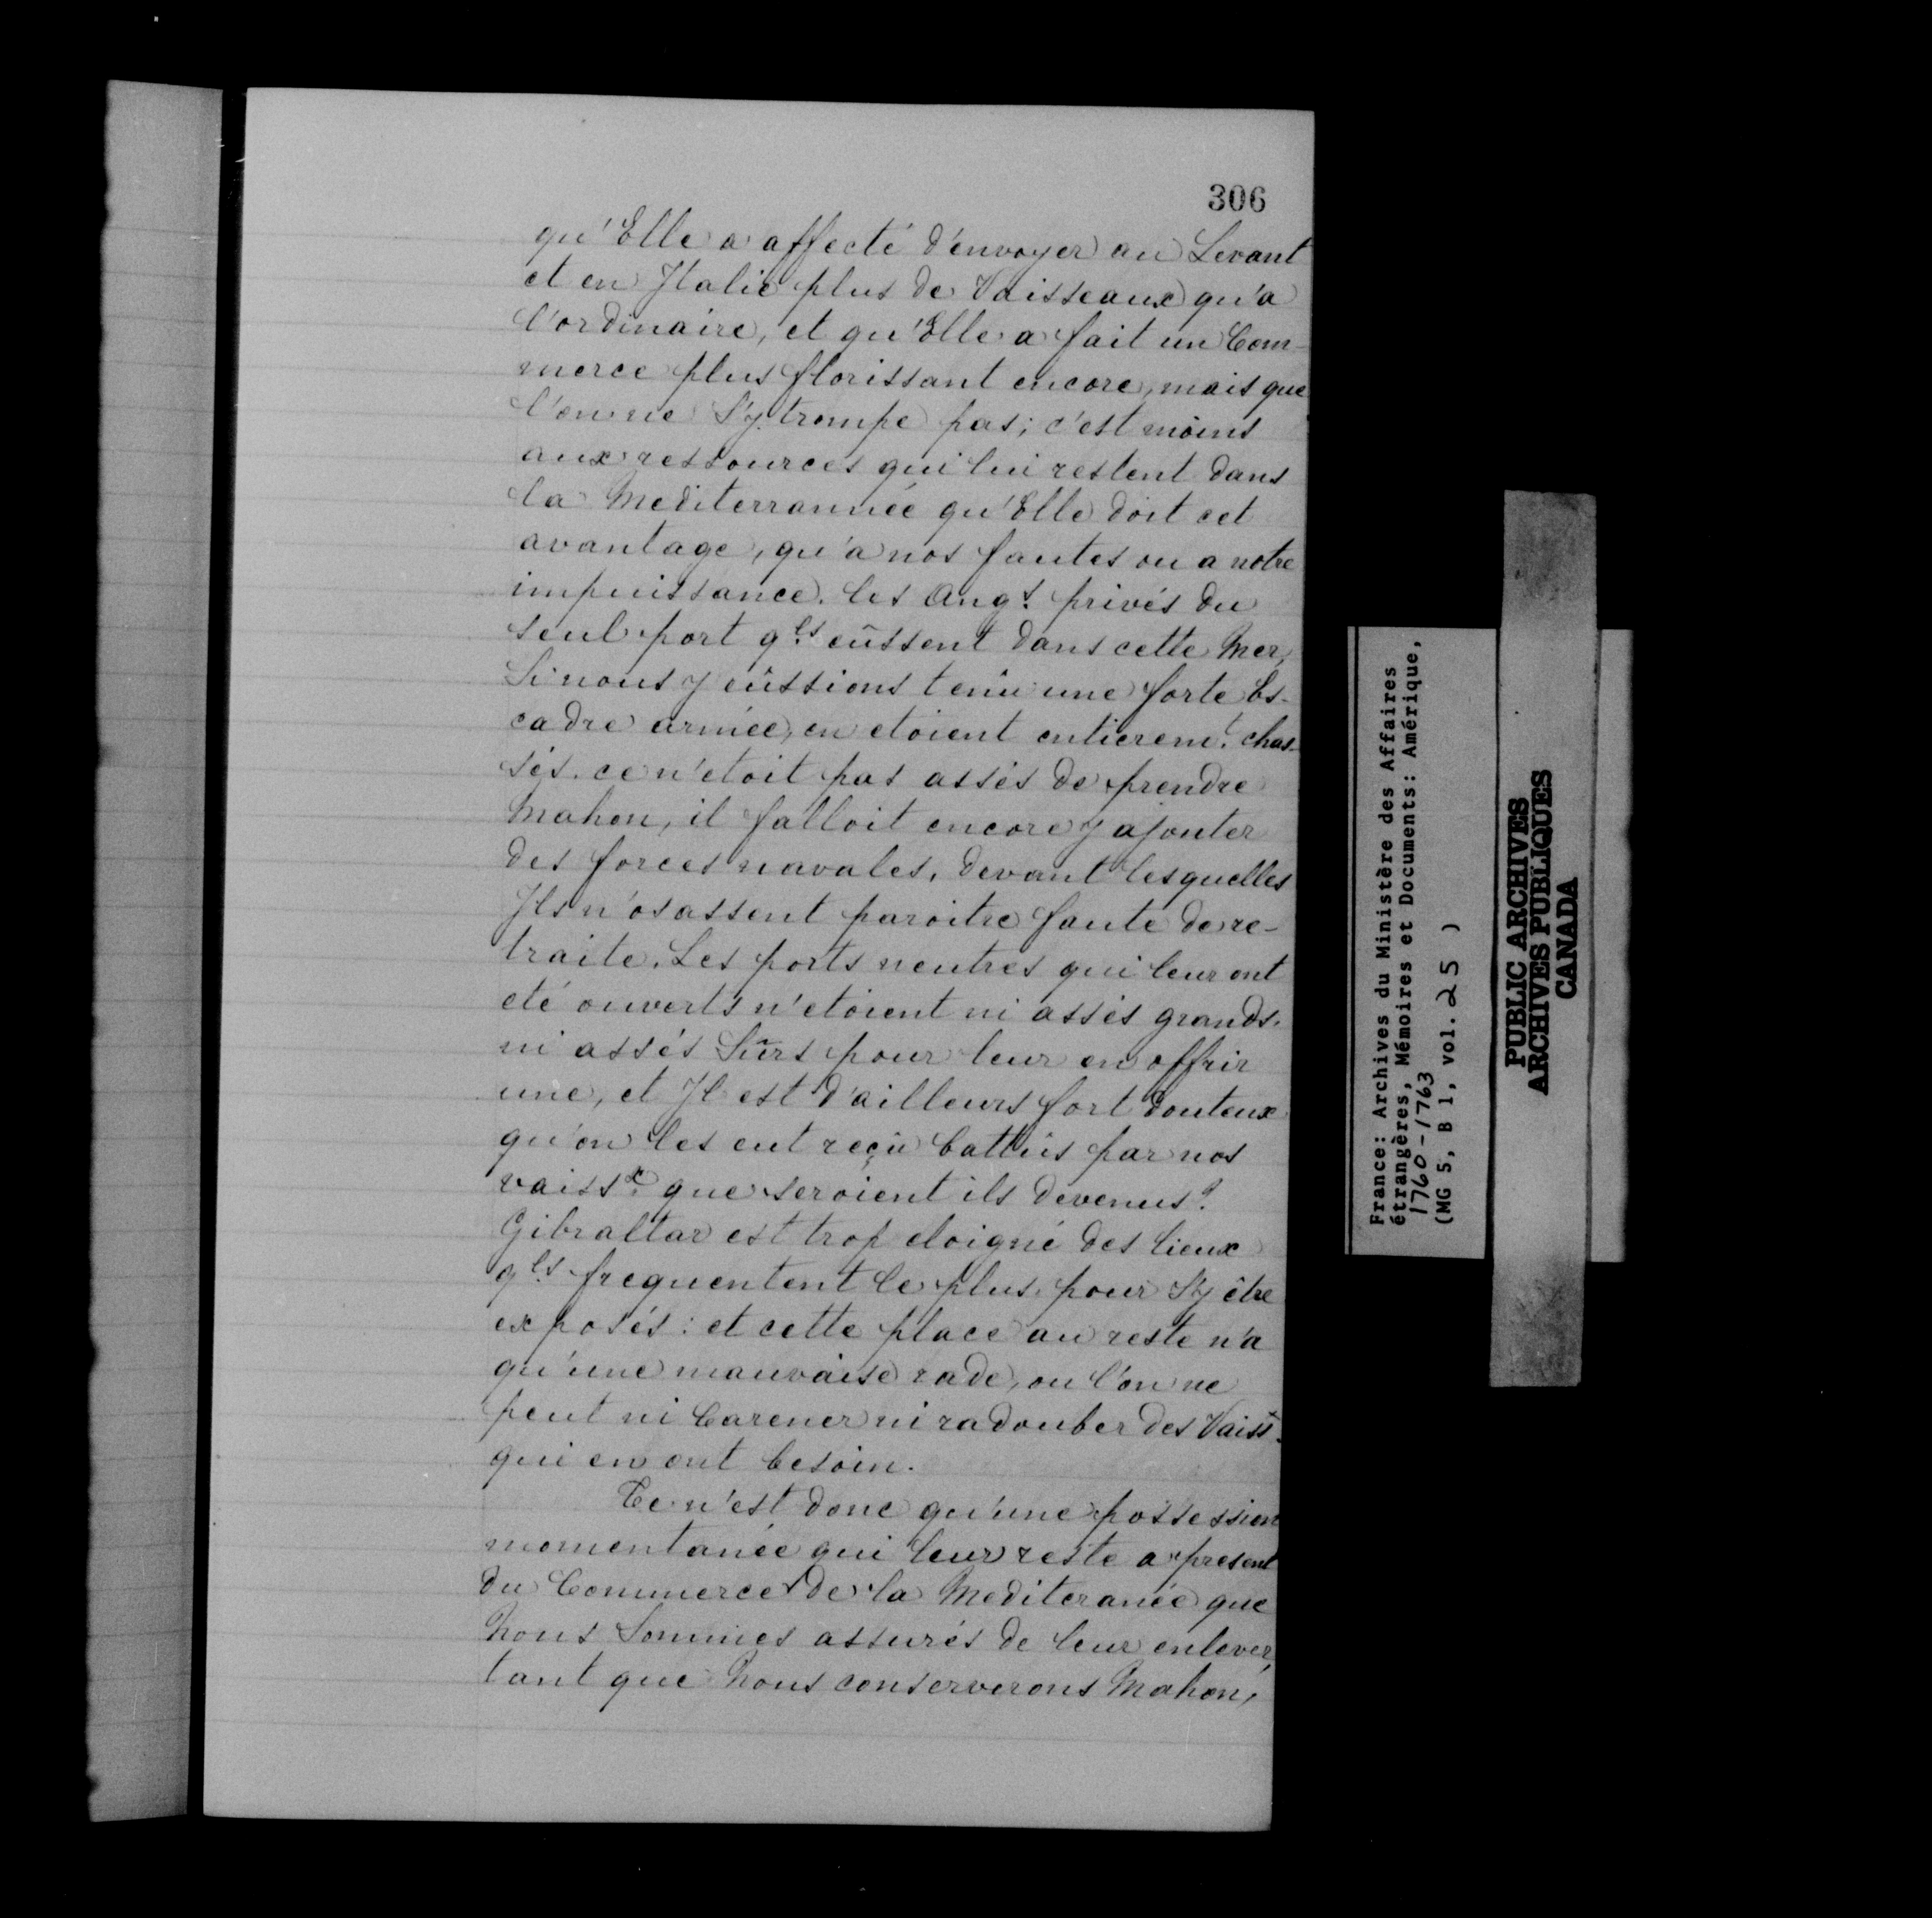 306
qu'Elle a affecté d'envoyer au Levant
et en Italie plus de Vaisseaux qu'a
l'ordinaire, et qu'Elle a fait un Com-
merce plus florissant encore, mais que
l'on ne S'y trompe pas; c'est moins
aux ressources qui lui restent dans
la Mediterrannée qu'Elle doit cet
avantage, qu'a nos fautes ou a notre
impuissance. les Angs. privés du
seul port qls. eûssent dans cette Mer,
Si nous y eûssions tenu une forte Es-
cadre armée, en etoient entieremt. chas-
sés. ce n'etoit pas assés de prendre
Mahon, il falloit encore y ajouter
des forces navales, devant lesquelles
Ils n'osassent paroitre faute de re-
traite. Les ports neutres qui leur ont
eté ouverts n'etoient ni assés grands.
ni assés Sûrs pour leur en offrir
une, et Il est d'ailleurs fort douteux
qu'on les eut reçu battus par nos
vaissx. que seroient ils devenus?
Gibraltar est trop eloigné des lieux
qls. frequentent le plus pour S'y être
exposés: et cette place au reste n'a
qu'une mauvaise rade, ou l'on ne
peut ni Carener ni radouber des Vaissx.
qui en ont besoin.
Ce n'est donc qu'une possession
momentanée qui leur reste a present
du Commerce de la Mediteranée que
Nous Sommes assurés de leur enlever,
tant que Nous conserverons Mahon,
France: Archives du Ministère des Affaires
étrangères, Mémoires et Documents: Amérique,
1760-1763
(MG 5, B 1, vol. 25 )
PUBLIC ARCHIVES
ARCHIVES PUBLIQUES
CANADA